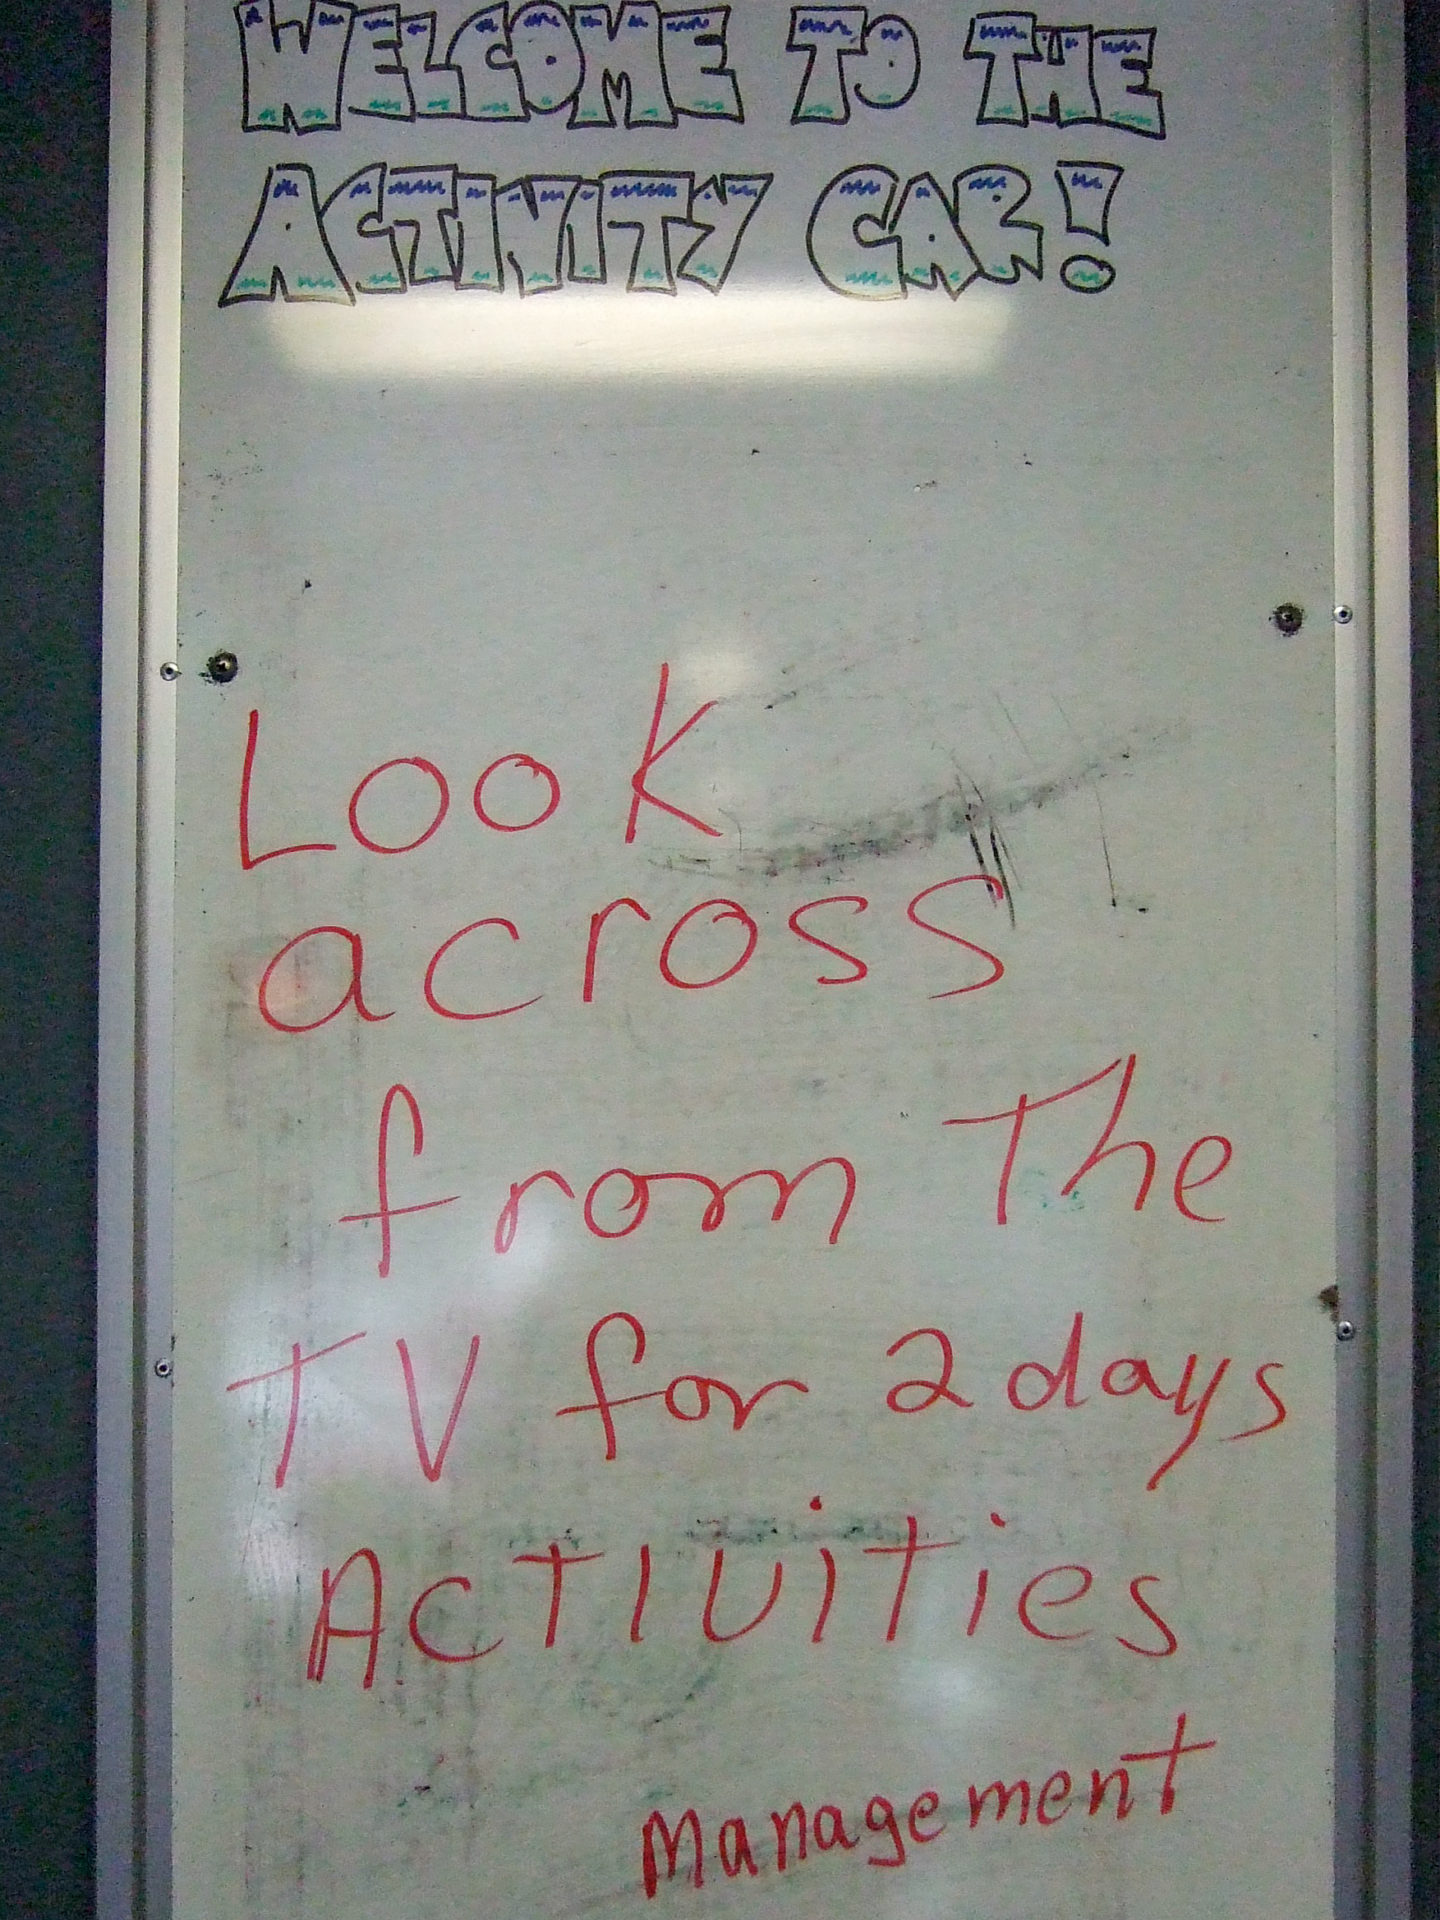 WELCOME TO THE
ACTIVITY CAR!
Look
across
from The
TV for 2days
Activities
Management